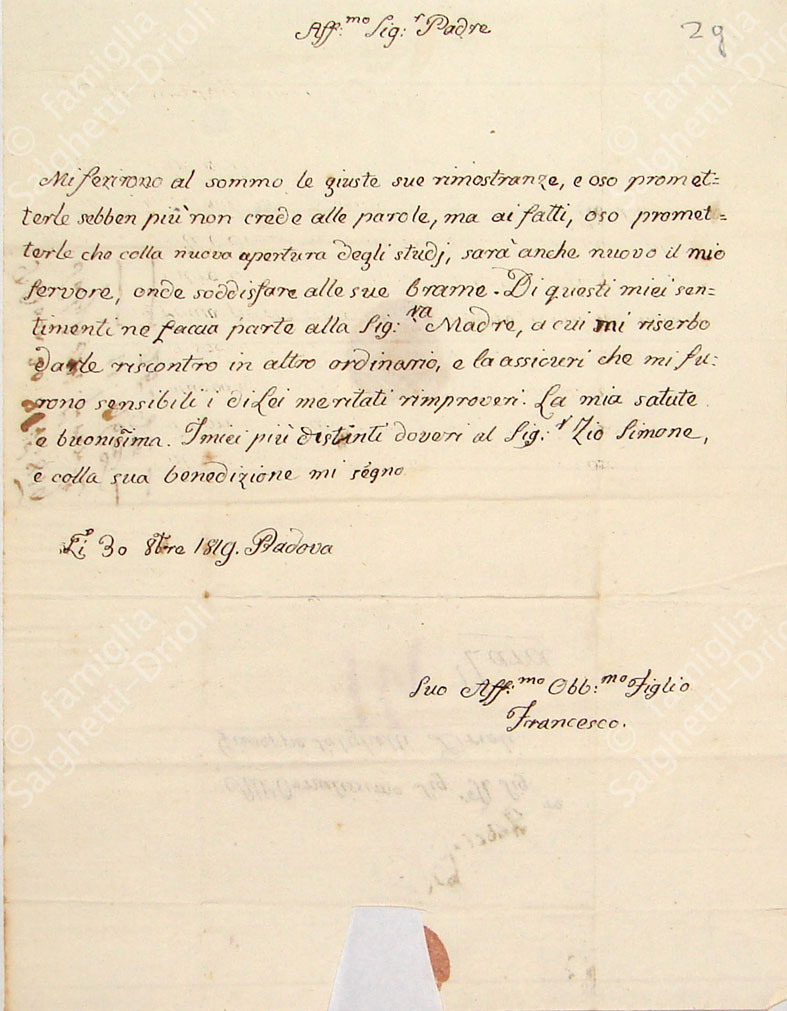 Aff:mo Sig:r Padre
29
Mi ferirono al sommo le giuste sue rimostranze, e oso promet=
terle sebben più non crede alle parole, ma ai fatti, oso promet=
terle che colla nuova apertura degli studj, sarà anche nuovo il mio
fervore, onde soddisfare alle sue brame. Di questi miei sen=
timenti ne faccia parte alla Sig:ra Madre, a cui mi riserbo
darle riscontro in altro ordinario, e la assicuri che mi fu=
rono sensibili i di Lei meritati rimproveri. La mia salute
è buonissima. I miei più distinti doveri al Sig:r Zio Simone,
e colla sua benedizione mi segno
Li 30 8bre 1819. Padova
Suo Aff:mo Obb:mo Figlio
Francesco.
© famiglia
Salghetti-Drioli
© famiglia
Salghetti-Drioli
© famiglia
Salghetti-Drioli
© famiglia
Salghetti-Drioli